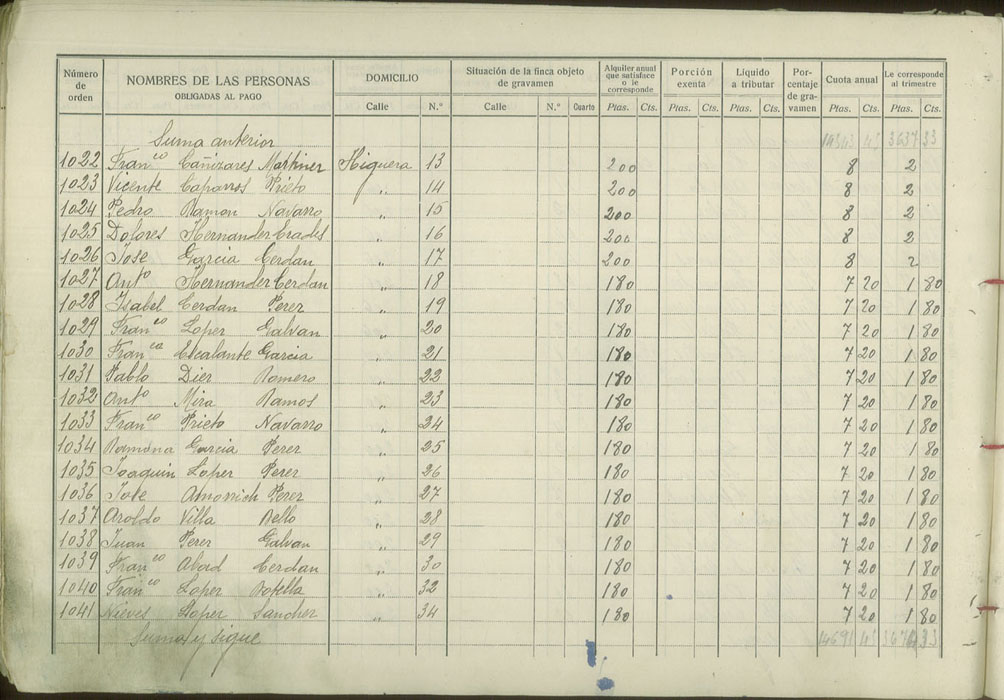 Número de orden NOMBRES DE LAS PERSONAS OBLIGADAS AL PAGO DOMICILIO Situación de la finca objeto de gravamen Alquiler anual que satisface o le corresponde Porción exenta Líquido a tributar Por-centaje de gra-vamen Cuota anual Le corresponde al trimestre
Calle N.º Calle N.º Cuarto Ptas. Cts. Ptas. Cts. Ptas. Cts. Ptas. Cts. Ptas. Cts.
Suma anterior 3637 33
1022 Fran.co Cañizares Martinez Higuera 13 200 8 2
1023 Vicente Caparros Prieto " 14 200 8 2
1024 Pedro Ramon Navarro " 15 200 8 2
1025 Dolores Hernandez " 16 200 8 2
1026 Jose Garcia Cerdan " 17 200 8 2
1027 Ant.o Hernandez Cerdan " 18 180 7 20 1 80
1028 Isabel Cerdan Perez " 19 180 7 20 1 80
1029 Fran.co Lopez Galvan " 20 180 7 20 1 80
1030 Fran.ca Escalante Garcia " 21 180 7 20 1 80
1031 Pablo Diez Romero " 22 180 7 20 1 80
1032 Ant.o Mira Ramos " 23 180 7 20 1 80
1033 Fran.co Prieto Navarro " 24 180 7 20 1 80
1034 Ramona Garcia Perez " 25 180 7 20 1 80
1035 Joaquin Lopez Perez " 26 180 7 20 1 80
1036 Jose Perez " 27 180 7 20 1 80
1037 Aroldo Villa Bello " 28 180 7 20 1 80
1038 Juan Perez Galvan " 29 180 7 20 1 80
1039 Fran.co Abad Cerdan " 30 180 7 20 1 80
1040 Fran.co Lopez Botella " 32 180 7 20 1 80
1041 Nieves Lopez Sanchez " 34 180 7 20 1 80
Suma y sigue